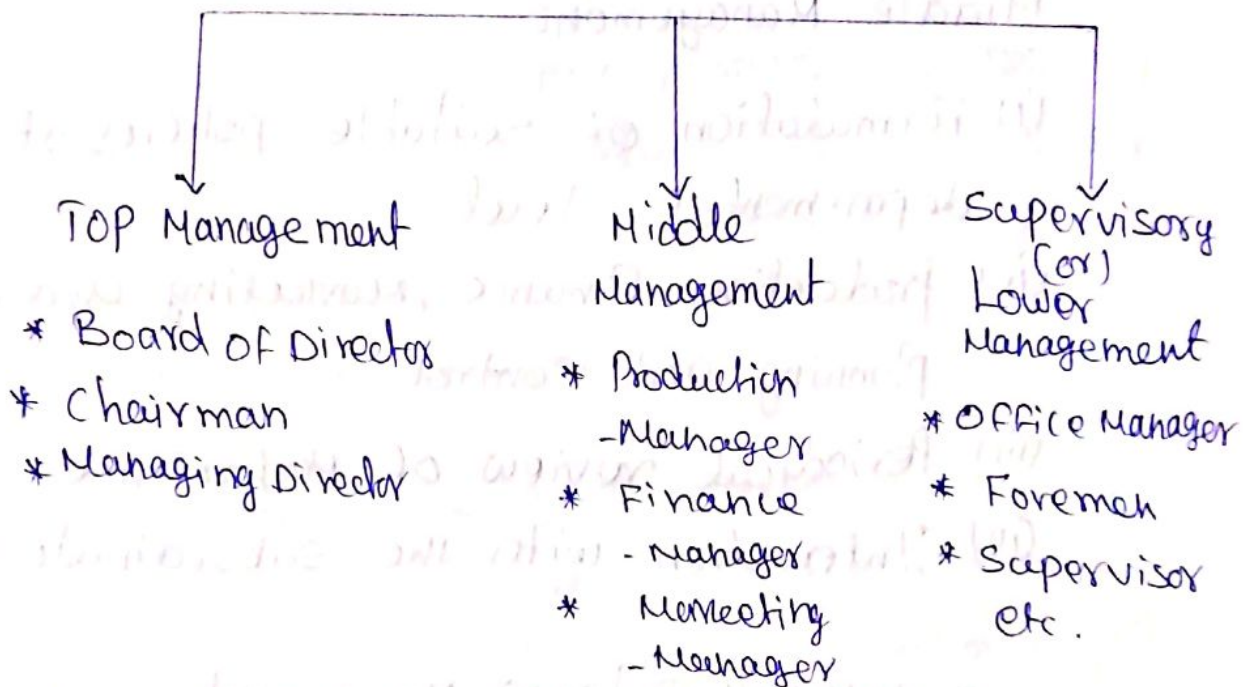 TOP Management
* Board of Director
* Chairman
* Managing Director
Middle
Management
* Production
- Manager
* Finance
- Manager
* Marketing
- Manager
Supervisory
(or)
Lower
Management
* Office Manager
* Foremen
* Supervisor
etc.